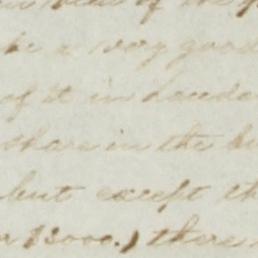 of the
be a very good
of it in
share in the
but except th
$3000.) there